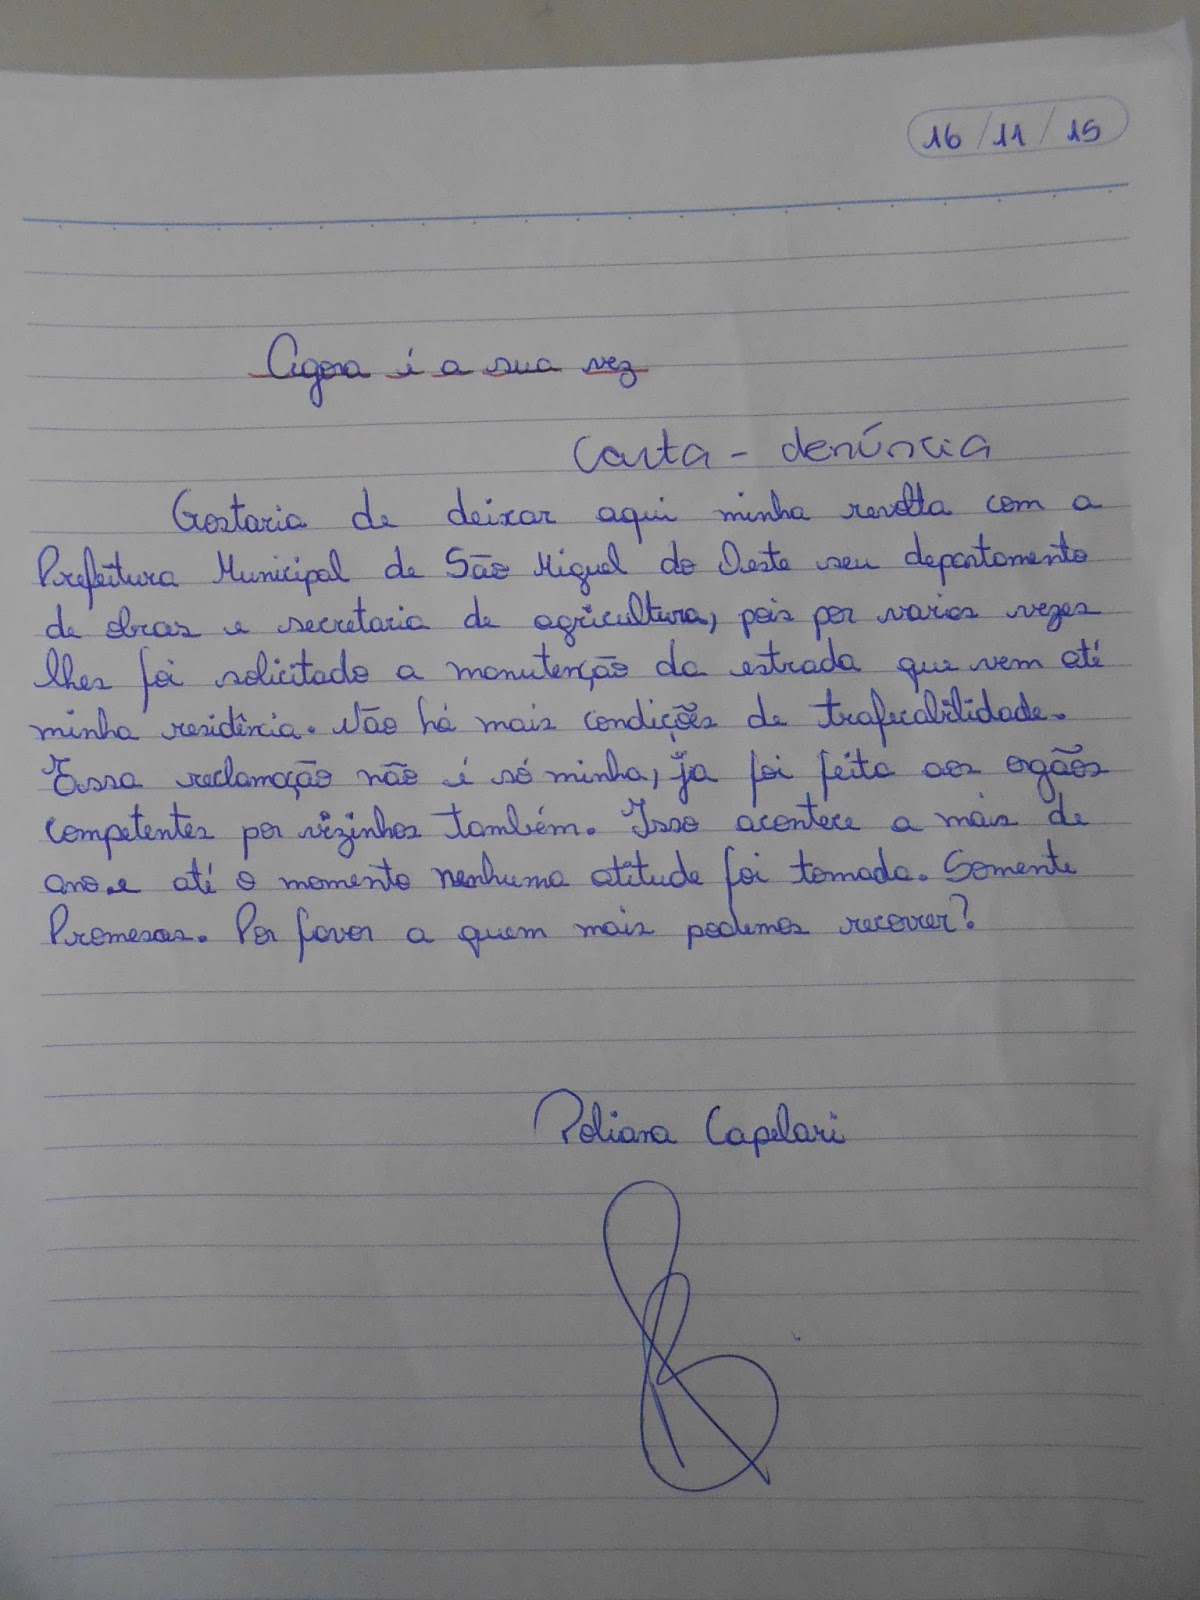 16/11/15
Agora é a sua vez
Carta - denúncia
Gostaria de deixar aqui minha revolta com a
Prefeitura Municipal de São Miguel do Oeste seu departamento
de obras e secretaria de agricultura, pois por varias vezes
lhes foi solicitado a manutenção da estrada que vem até
minha residência. Não há mais condições de trafecabilidade.
Essa reclamação não é só minha, ja foi feita aos orgãos
competentes por vizinhos também. Isso acontece a mais de
ano.e até o momento nenhuma atitude foi tomada. Somente
Promessas. Por favor a quem mais podemos recorrer?
Poliana Capelari